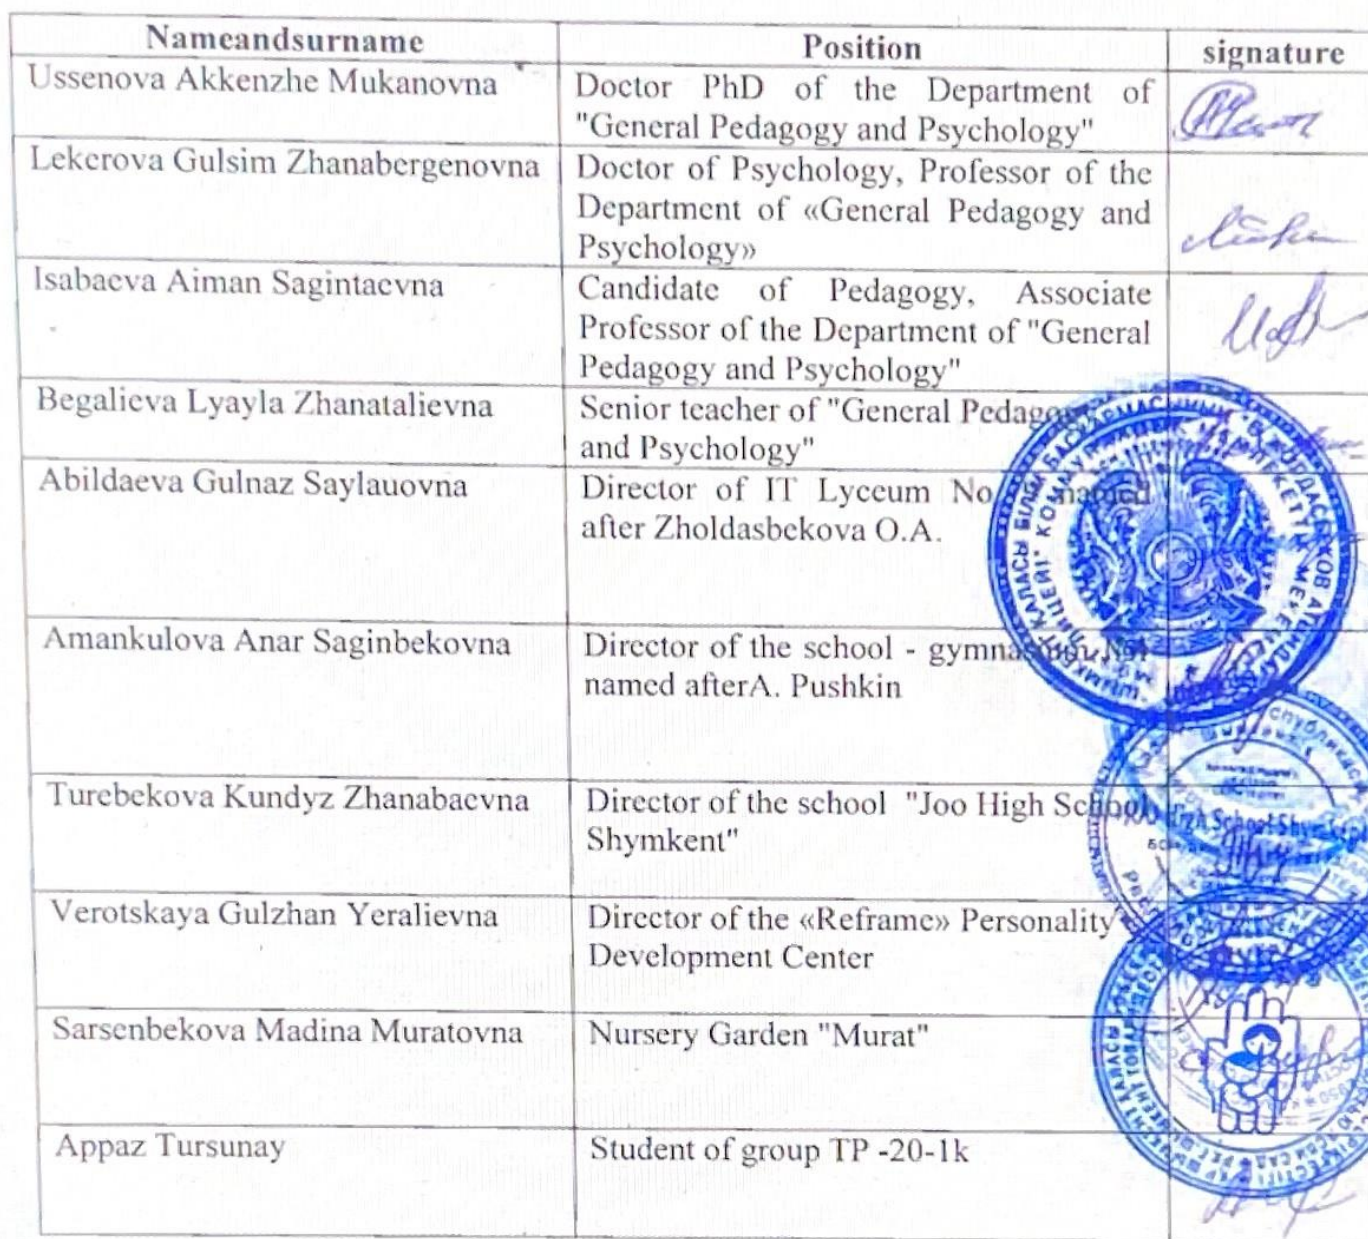 Nameandsurname Position signature
Ussenova Akkenzhe Mukanovna
Doctor PhD of the Department of
"General Pedagogy and Psychology"
Lekerova Gulsim Zhanabergenovna
Doctor of Psychology, Professor of the
Department of «General Pedagogy and
Psychology»
Isabaeva Aiman Sagintaevna
Candidate of Pedagogy, Associate
Professor of the Department of "General
Pedagogy and Psychology"
Begalieva Lyayla Zhanatalievna
Senior teacher of "General Pedagogy
and Psychology"
Abildaeva Gulnaz Saylauovna
Director of IT Lyceum No named
after Zholdasbekova O.A.
Amankulova Anar Saginbekovna
Director of the school - gymnasium
named afterA. Pushkin
Turebekova Kundyz Zhanabaevna
Director of the school "Joo High School
Shymkent"
Verotskaya Gulzhan Yeralievna
Director of the «Reframe» Personality
Development Center
Sarsenbekova Madina Muratovna
Nursery Garden "Murat"
Appaz Tursunay
Student of group TP -20-1k